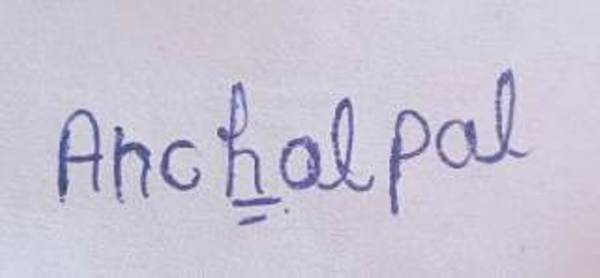 Anchal pal